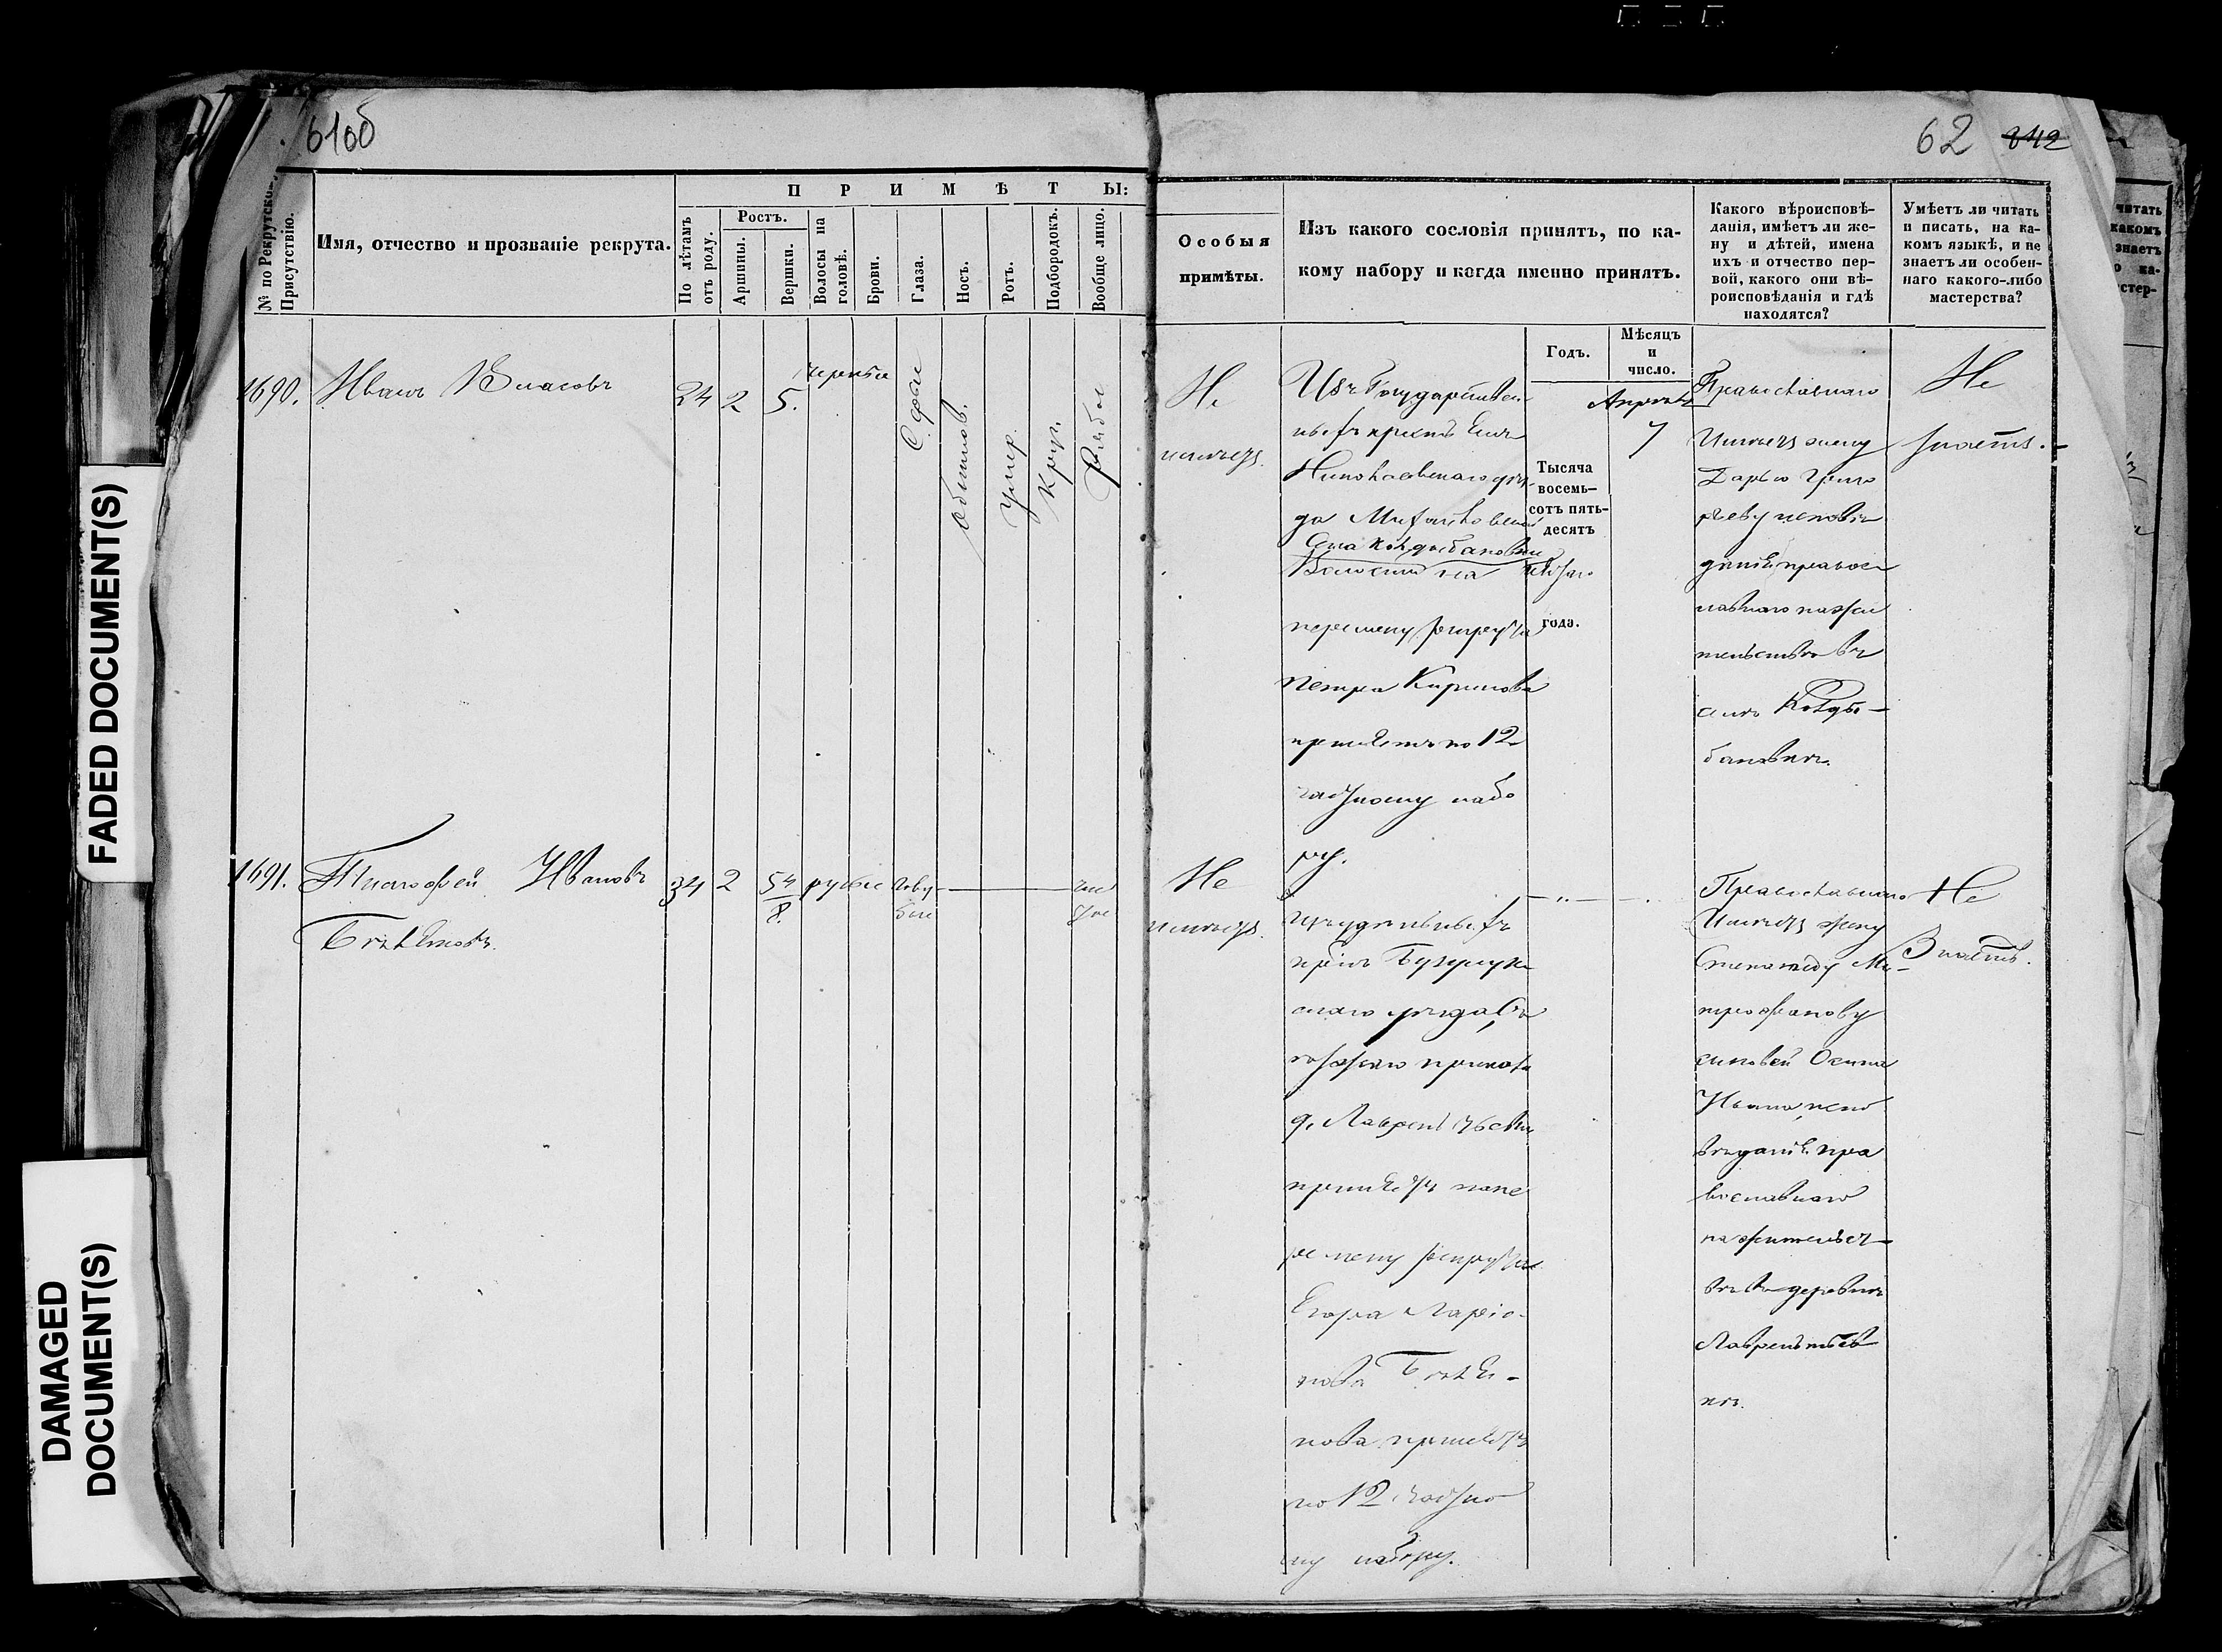 61об
62 242
П Р И М Ѣ Т Ы:
№ по Рекрутскому
Присутствію.
Имя, отчество и прозваніе рекрута.
По лѣтамъ
отъ роду.
Ростъ.
Аршины.
Вершки.
Волосы на
головѣ.
Брови.
Глаза.
Носъ.
Ротъ.
Подбородокъ.
Вообще лицо.
Особыя
примѣты.
Изъ какого сословія принятъ, по ка-
кому набору и когда именно принятъ.
Годъ.
Мѣсяцъ
и
число.
Какого вѣроисповѣ-
данія, имѣетъ ли же-
ну и дѣтей, имена
ихъ и отчество пер-
вой, какого они вѣ-
роисповѣданія и гдѣ
находятся?
Умѣетъ ли читать
и писать, на ка-
комъ языкѣ, и не
знаетъ ли особен-
наго какого-либо
мастерства?
1690.
Иванъ Власовъ
24 2 5.
черные
Сѣрые
обыкнов.
Умер.
Кругл.
Рябое
Не
имѣетъ.
Изъ Государствен
ныхъ крестъ
Николаевскаго уѣз
да
Села Колдыбановки
Волости на
перемену рекрута
Петра Кирилова
по 12
частному набо
ру.
Тысяча
восемь-
сотъ пять-
десятъ
года.
Апрѣль
7
Православнаго
Имѣетъ жену
Дарью Григо
рьеву исповѣ
данія правос
лавнаго на жи
тельствѣ въ
селѣ Колды-
бановкѣ.
Не
знаетъ.
1691.
Тимофей Ивановъ
34 2 5 4/8
русые
голу
бые
чис
тое
Не
имѣетъ.
изъ удѣльныхъ
крест. Бузулук
скаго уѣзда
приказа
д. Лаврентьевки
на пе
ремену рекрута
Егора Ларіо-
нова
нова
по 12 частно
му набору.
Православнаго
Имѣетъ жену
Степаниду Ми-
трофанову
сыновей Осипа
Ивана, испо
вѣданія пра
вославнаго
на жительст
вѣ въ деревнѣ
Лаврентьев
кѣ.
Не
Знаетъ.
FADED DOCUMENT(S)
DAMAGED
DOCUMENT(S)